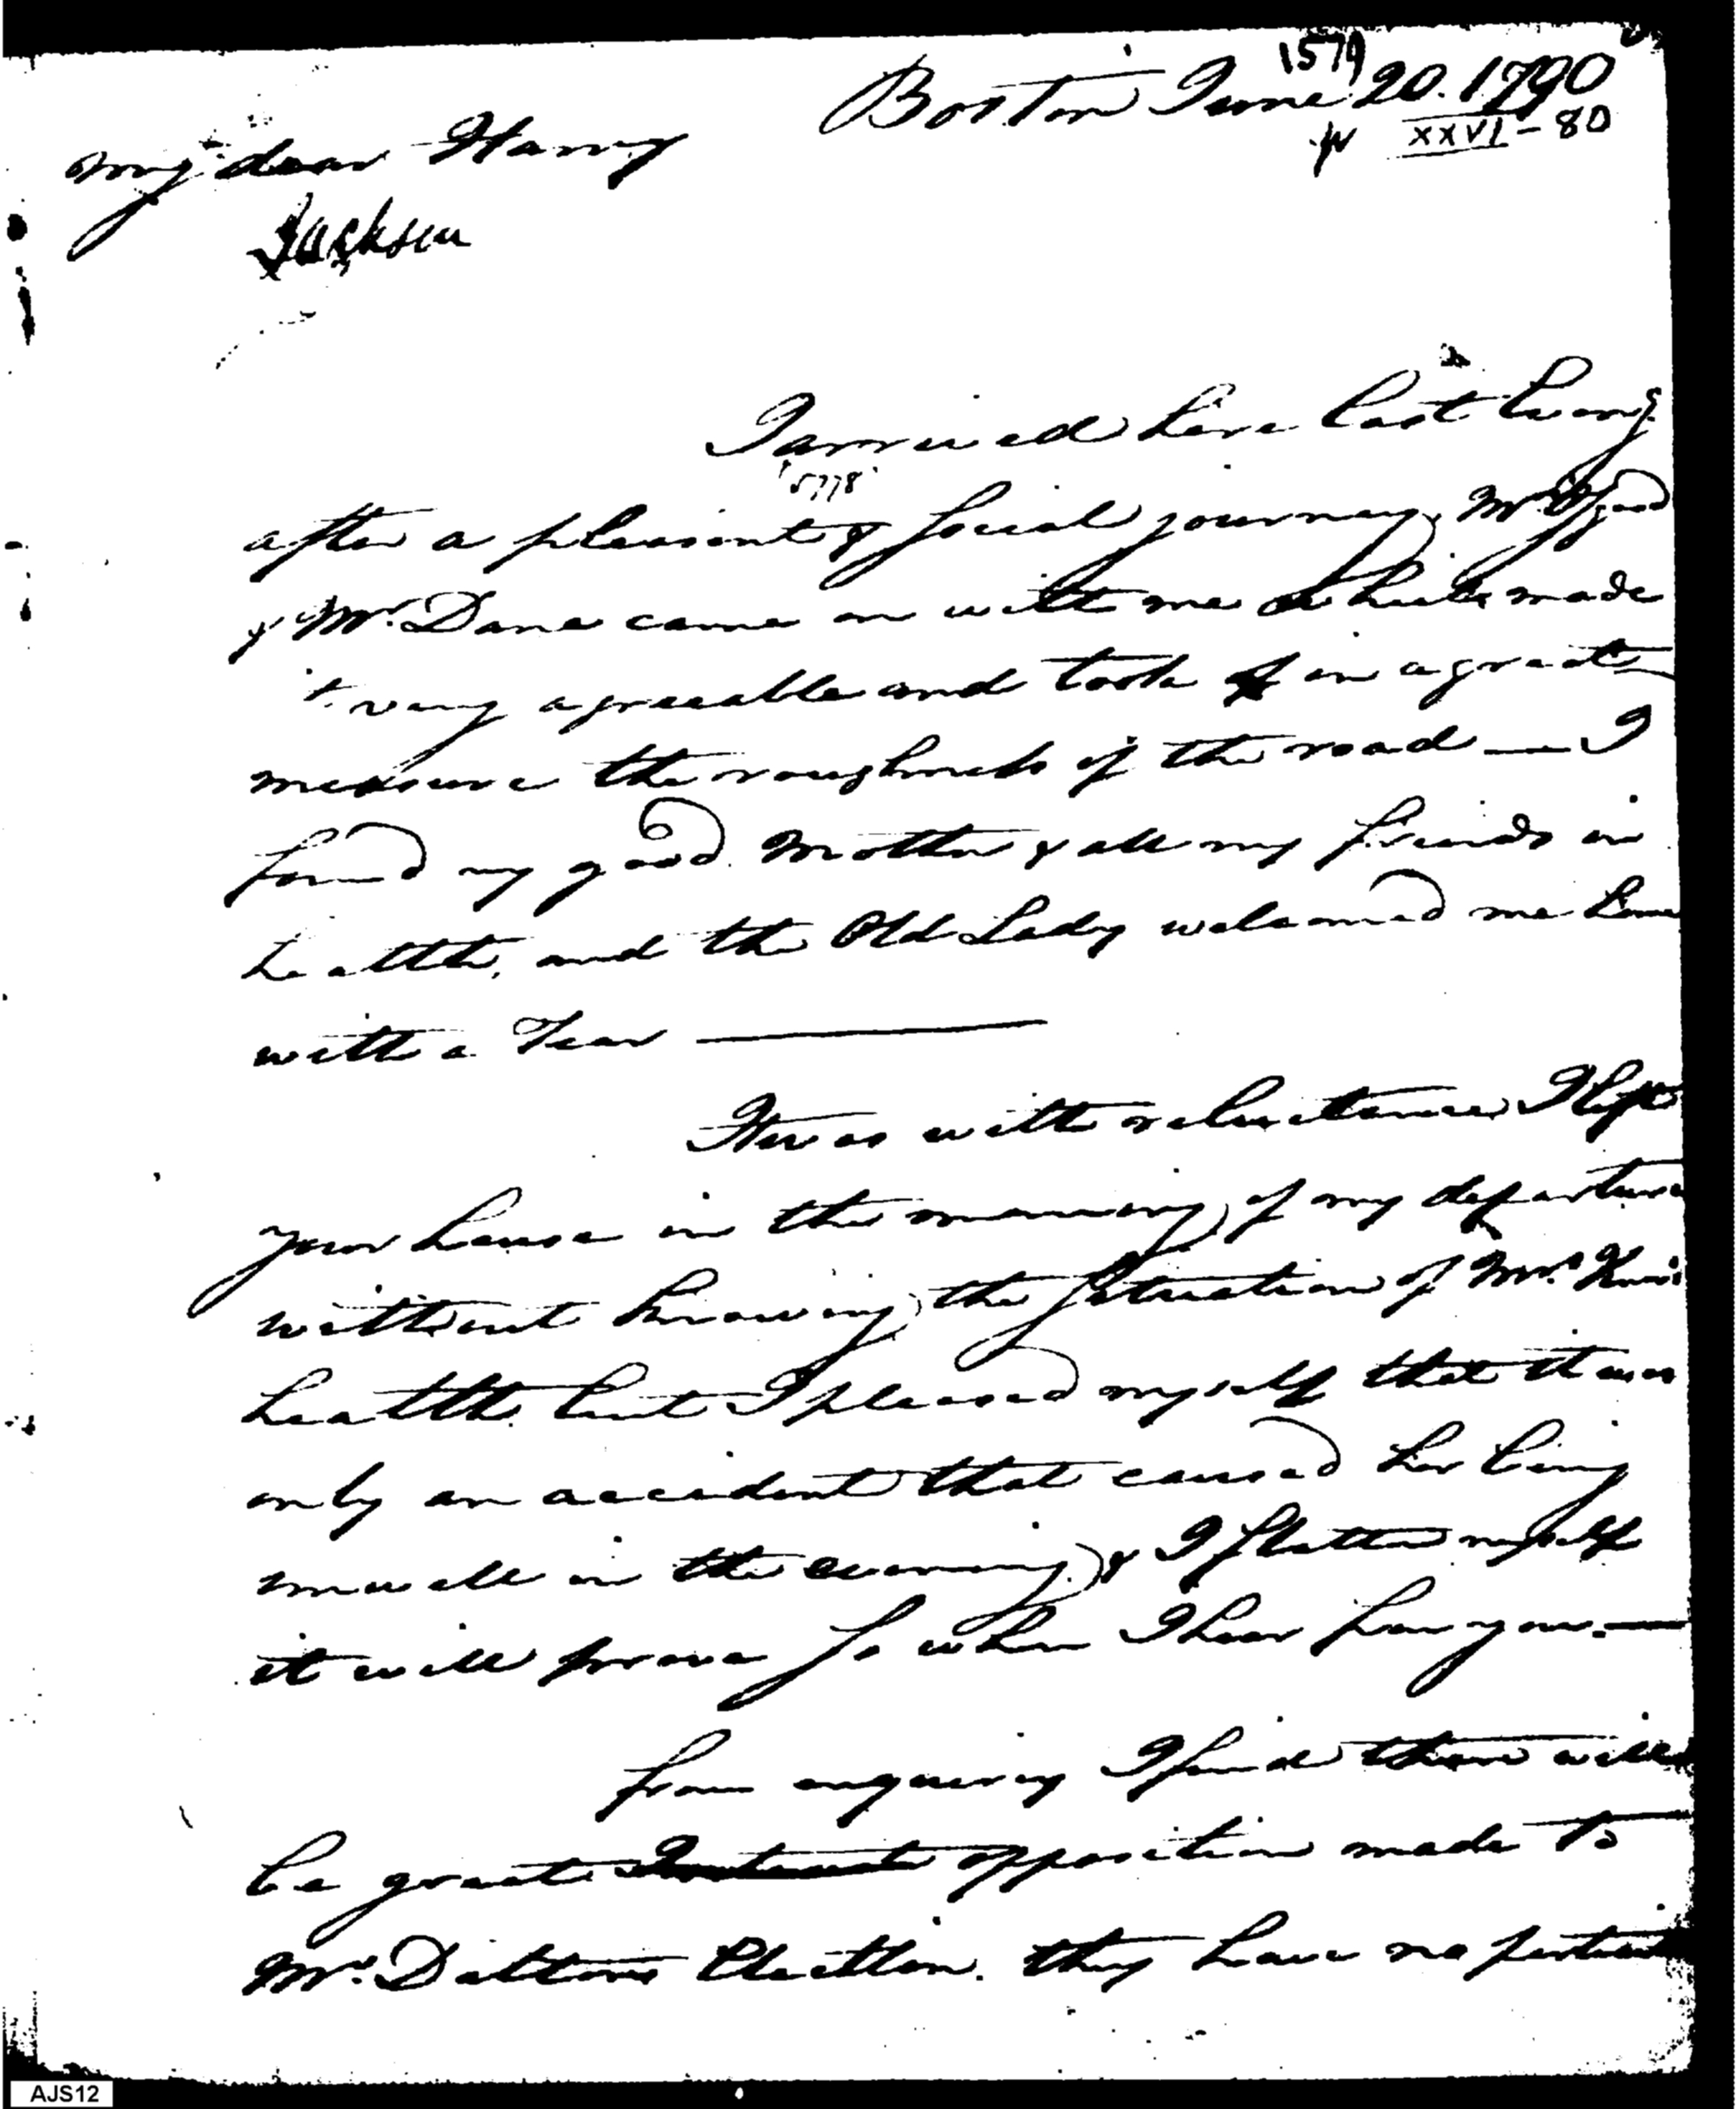 1579
Boston June 20. 1790
W XXVI - 80
My dear Harry
Jackson
I arrived here last Eveng.
5778
after a pleasant & social journey, Mr.
& Mr. Dane came on with me which made
it very agreeable and took of in a great
measure the roughness of the road — I
found my good Mother & all my friends in
health, and the Old Lady welcomed me home
with a Tear —
It was with reluctance I left
your house in the morning of my departure
without knowing the situation of Mrs. Knox's
health but I pleased myself that it was
only an accident that caused her being
unwell in the evening, & I flatter myself
it will prove so when I hear from you. —
from enquiring I find there will
be great opposition made to
Mr. Daltons Election. they have no particular
AJS12